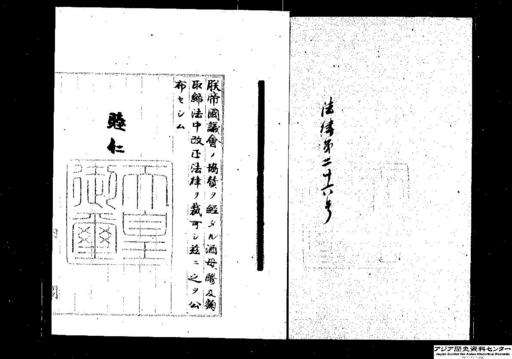 法律第二十六号
朕帝國議會ノ協賛ヲ經タル酒母醪及麹
取締法中改正法律ヲ裁可シ茲ニ之ヲ公
布セシム
睦仁
天皇御璽
アジア歴史資料センター
Japan Center for Asian Historical Records